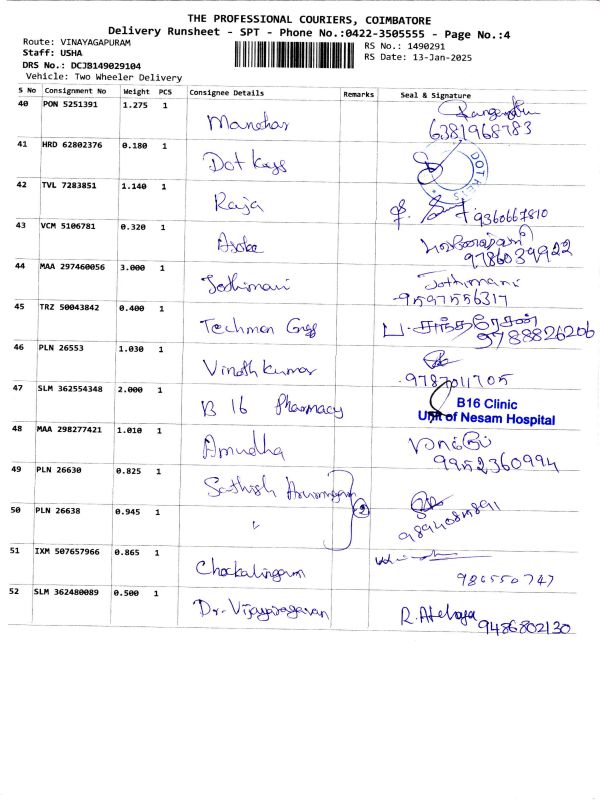 THE PROFESSIONAL COURIERS, COIMBATORE
Delivery Runsheet - SPT - Phone No.:0422-3505555 - Page No.:4
Route: VINAYAGAPURAM
RS No.: 1490291
Staff: USHA
RS Date: 13-Jan-2025
DRS No.: DCJB149029104
Vehicle: Two Wheeler Delivery
S No Consignment No Weight PCS Consignee Details Remarks Seal & Signature
40 PON 5251391 1.275 1 Manohar
6381968783
41 HRD 62802376 0.180 1 Dot Keys
DOT KEYS
42 TVL 7283851 1.140 1 Raja
9360667810
43 VCM 5106781 0.320 1 Asoka
9786039922
44 MAA 297460056 3.000 1 Jothimani Jothimani
9597556317
45 TRZ 50043842 0.400 1 Techmen Engg
9788826206
46 PLN 26553 1.030 1 Vinoth Kumar
9787011705
47 SLM 362554348 2.000 1 B 16 Pharmacy
B16 Clinic
Unit of Nesam Hospital
48 MAA 298277421 1.010 1 Amudha
9952360994
49 PLN 26630 0.825 1 Sathish Arumugam
2
50 PLN 26638 0.945 1 "
51 IXM 507657966 0.865 1 Chockalingam
986550747
52 SLM 362480089 0.500 1 Dr. Vijayaragavan
9486802130